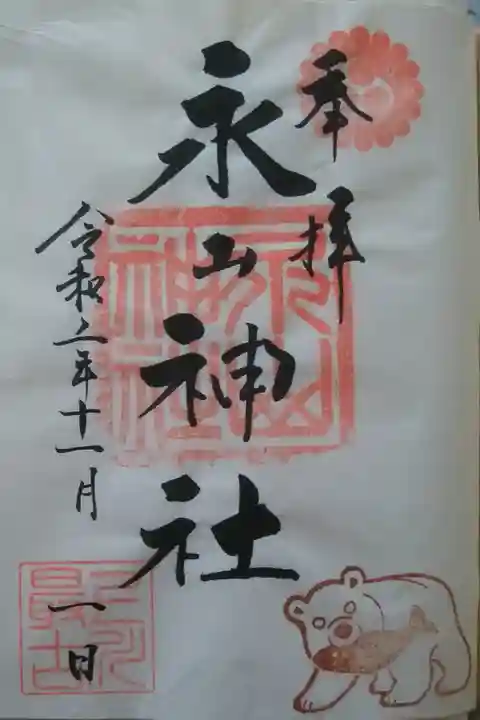 奉拝
永山神社
令和二年十一月
一日